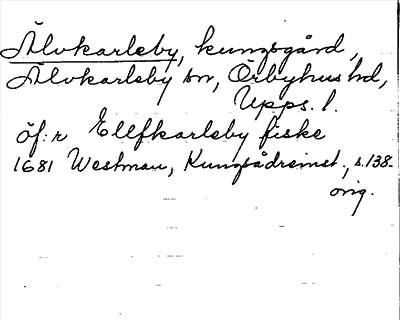 Älvkarleby, kungsgård,
Älvkarleby sn, Örbyhus hd,
Upps. l.
öf:r Ellfkarleby fiske
1681 Westman, Kungsådreinst., s. 138.
orig.